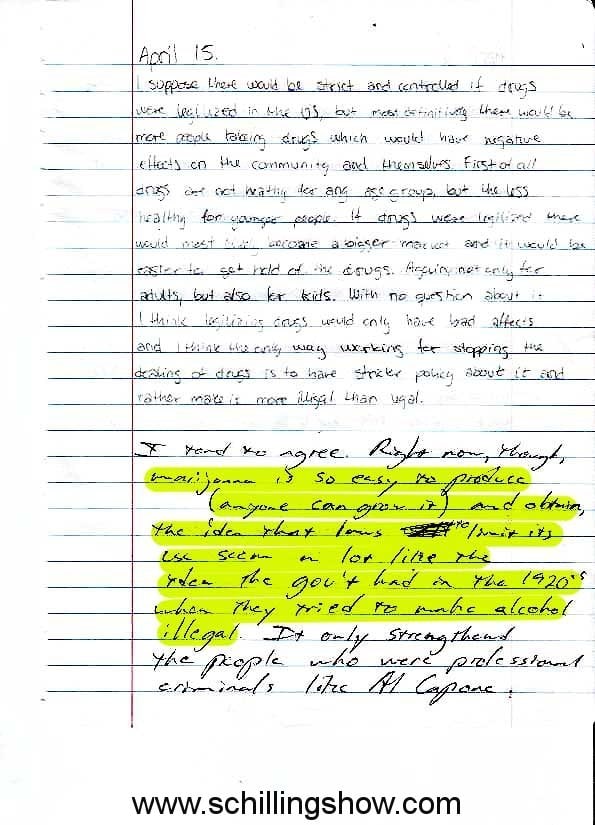 April 15.
I suppose there would be strict and controlled if drugs
were legilized in the US, but most definitively there would be
more people taking drugs which would have negative
effects on the community and themselves. First of all
drugs are not healthy for any age group, but the less
healthy for younger people. If drugs were legilized there
would most likely become a bigger market and it would be
easier to get hold of the drugs. Again, not only for
adults, but also for kids. With no question about it
I think legilizing drugs would only have bad affects
and I think the only way working for stopping the
dealing of drugs is to have stricter policy about it and
rather make it more illigal than legal.
I tend to agree. Right now, though,
marijuana is so easy to produce
(anyone can grow it) and obtain,
the idea that laws to limit its
use seem a lot like the
idea the gov't had in the 1920's
when they tried to make alcohol
illegal. It only strengthend
the people who were professional
criminals like Al Capone.
www.schillingshow.com